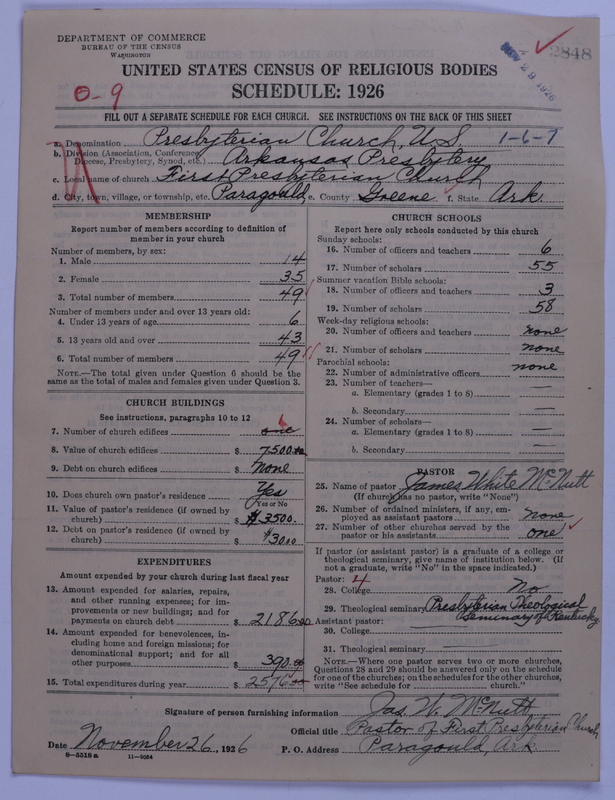 DEPARTMENT OF COMMERCE
BUREAU OF THE CENSUS
WASHINGTON
2848
NOV 29 1926
UNITED STATES CENSUS OF RELIGIOUS BODIES
SCHEDULE: 1926
0-9
FILL OUT A SEPARATE SCHEDULE FOR EACH CHURCH. SEE INSTRUCTIONS ON THE BACK OF THIS SHEET
a. Denomination Presbyterian Church, U.S. 1-6-7
b. Division (Association, Conference, Diocese, Presbytery, Synod, etc.) Arkansas Presbytery
c. Local name of church First Presbyterian Church
d. City, town, village, or township, etc. Paragould, e. County Greene f. State Ark.
MEMBERSHIP
Report number of members according to definition of member in your church
Number of members, by sex:
1. Male 14
2. Female 35
3. Total number of members 49
Number of members under and over 13 years old:
4. Under 13 years of age 6
5. 13 years old and over 43
6. Total number of members 49
NOTE.—The total given under Question 6 should be same as the total of males and females given under Question 3.
CHURCH BUILDINGS
See instructions, paragraphs 10 to 12
7. Number of church edifices one 1
8. Value of church edifices $ 7500.00
9. Debt on church edifices $ None
10. Does church own pastor's residence Yes
Yes or No
11. Value of pastor's residence (if owned by church) $ $3500.
12. Debt on pastor's residence (if owned by church) $ $3000
EXPENDITURES
Amount expended by your church during last fiscal year
13. Amount expended for salaries, repairs, and other running expenses; for improvements or new buildings; and for payments on church debt $ 2186.00
14. Amount expended for benevolences, including home and foreign missions; for denominational support; and for all other purposes $ 390.00
15. Total expenditures during year $ 2576.00
CHURCH SCHOOLS
Report here only schools conducted by this church
Sunday schools:
16. Number of officers and teachers 6
17. Number of scholars 55
Summer vacation Bible schools:
18. Number of officers and teachers 3
19. Number of scholars 58
Week-day religious schools:
20. Number of officers and teachers none
21. Number of scholars none
Parochial schools:
22. Number of administrative officers none
23. Number of teachers—
a. Elementary (grades 1 to 8) —
b. Secondary —
24. Number of scholars—
a. Elementary (grades 1 to 8) —
b. Secondary —
PASTOR
25. Name of pastor James White McNutt
(If church has no pastor, write "None")
26. Number of ordained ministers, if any, employed as assistant pastors none
27. Number of other churches served by the pastor or his assistants one
If pastor (or assistant pastor) is a graduate of a college or theological seminary, give name of institution below. (If not a graduate, write "No" in the space indicated.)
Pastor: 4
28. College No
29. Theological seminary Presbyterian Theological Seminary of Kentucky
Assistant pastor:
30. College
31. Theological seminary
NOTE.—Where one pastor serves two or more churches, Questions 28 and 29 should be answered only on the schedule for one of the churches; on the schedules for the other churches, write "See schedule for church."
Signature of person furnishing information Jas. W. McNutt
Official title Pastor of First Presbyterian Church
Date November 26, 1926 P. O. Address Paragould, Ark.
8-5518a 11-9064